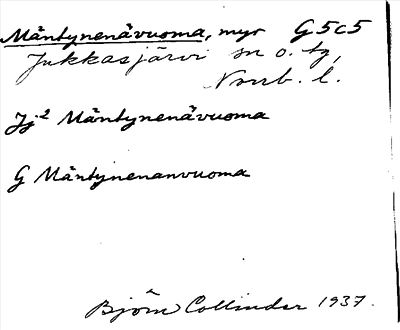 Mäntynenävuoma, myr G5c5
Jukkasjärvi sn o. tg,
Norrb. l.
Jj² Mäntynenävuoma
G Mäntynenanvuoma
Björn Collinder 1937.